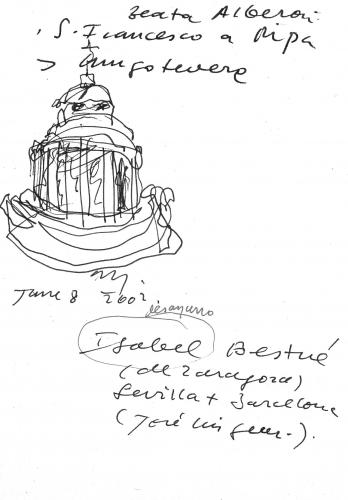 Beata Alberoni
. S. Francesco a Ripa
> Lungotevere
June 8 2002.
desayuno
Isabel Bestué
(de Zaragoza)
Sevilla + Barcelona
(José